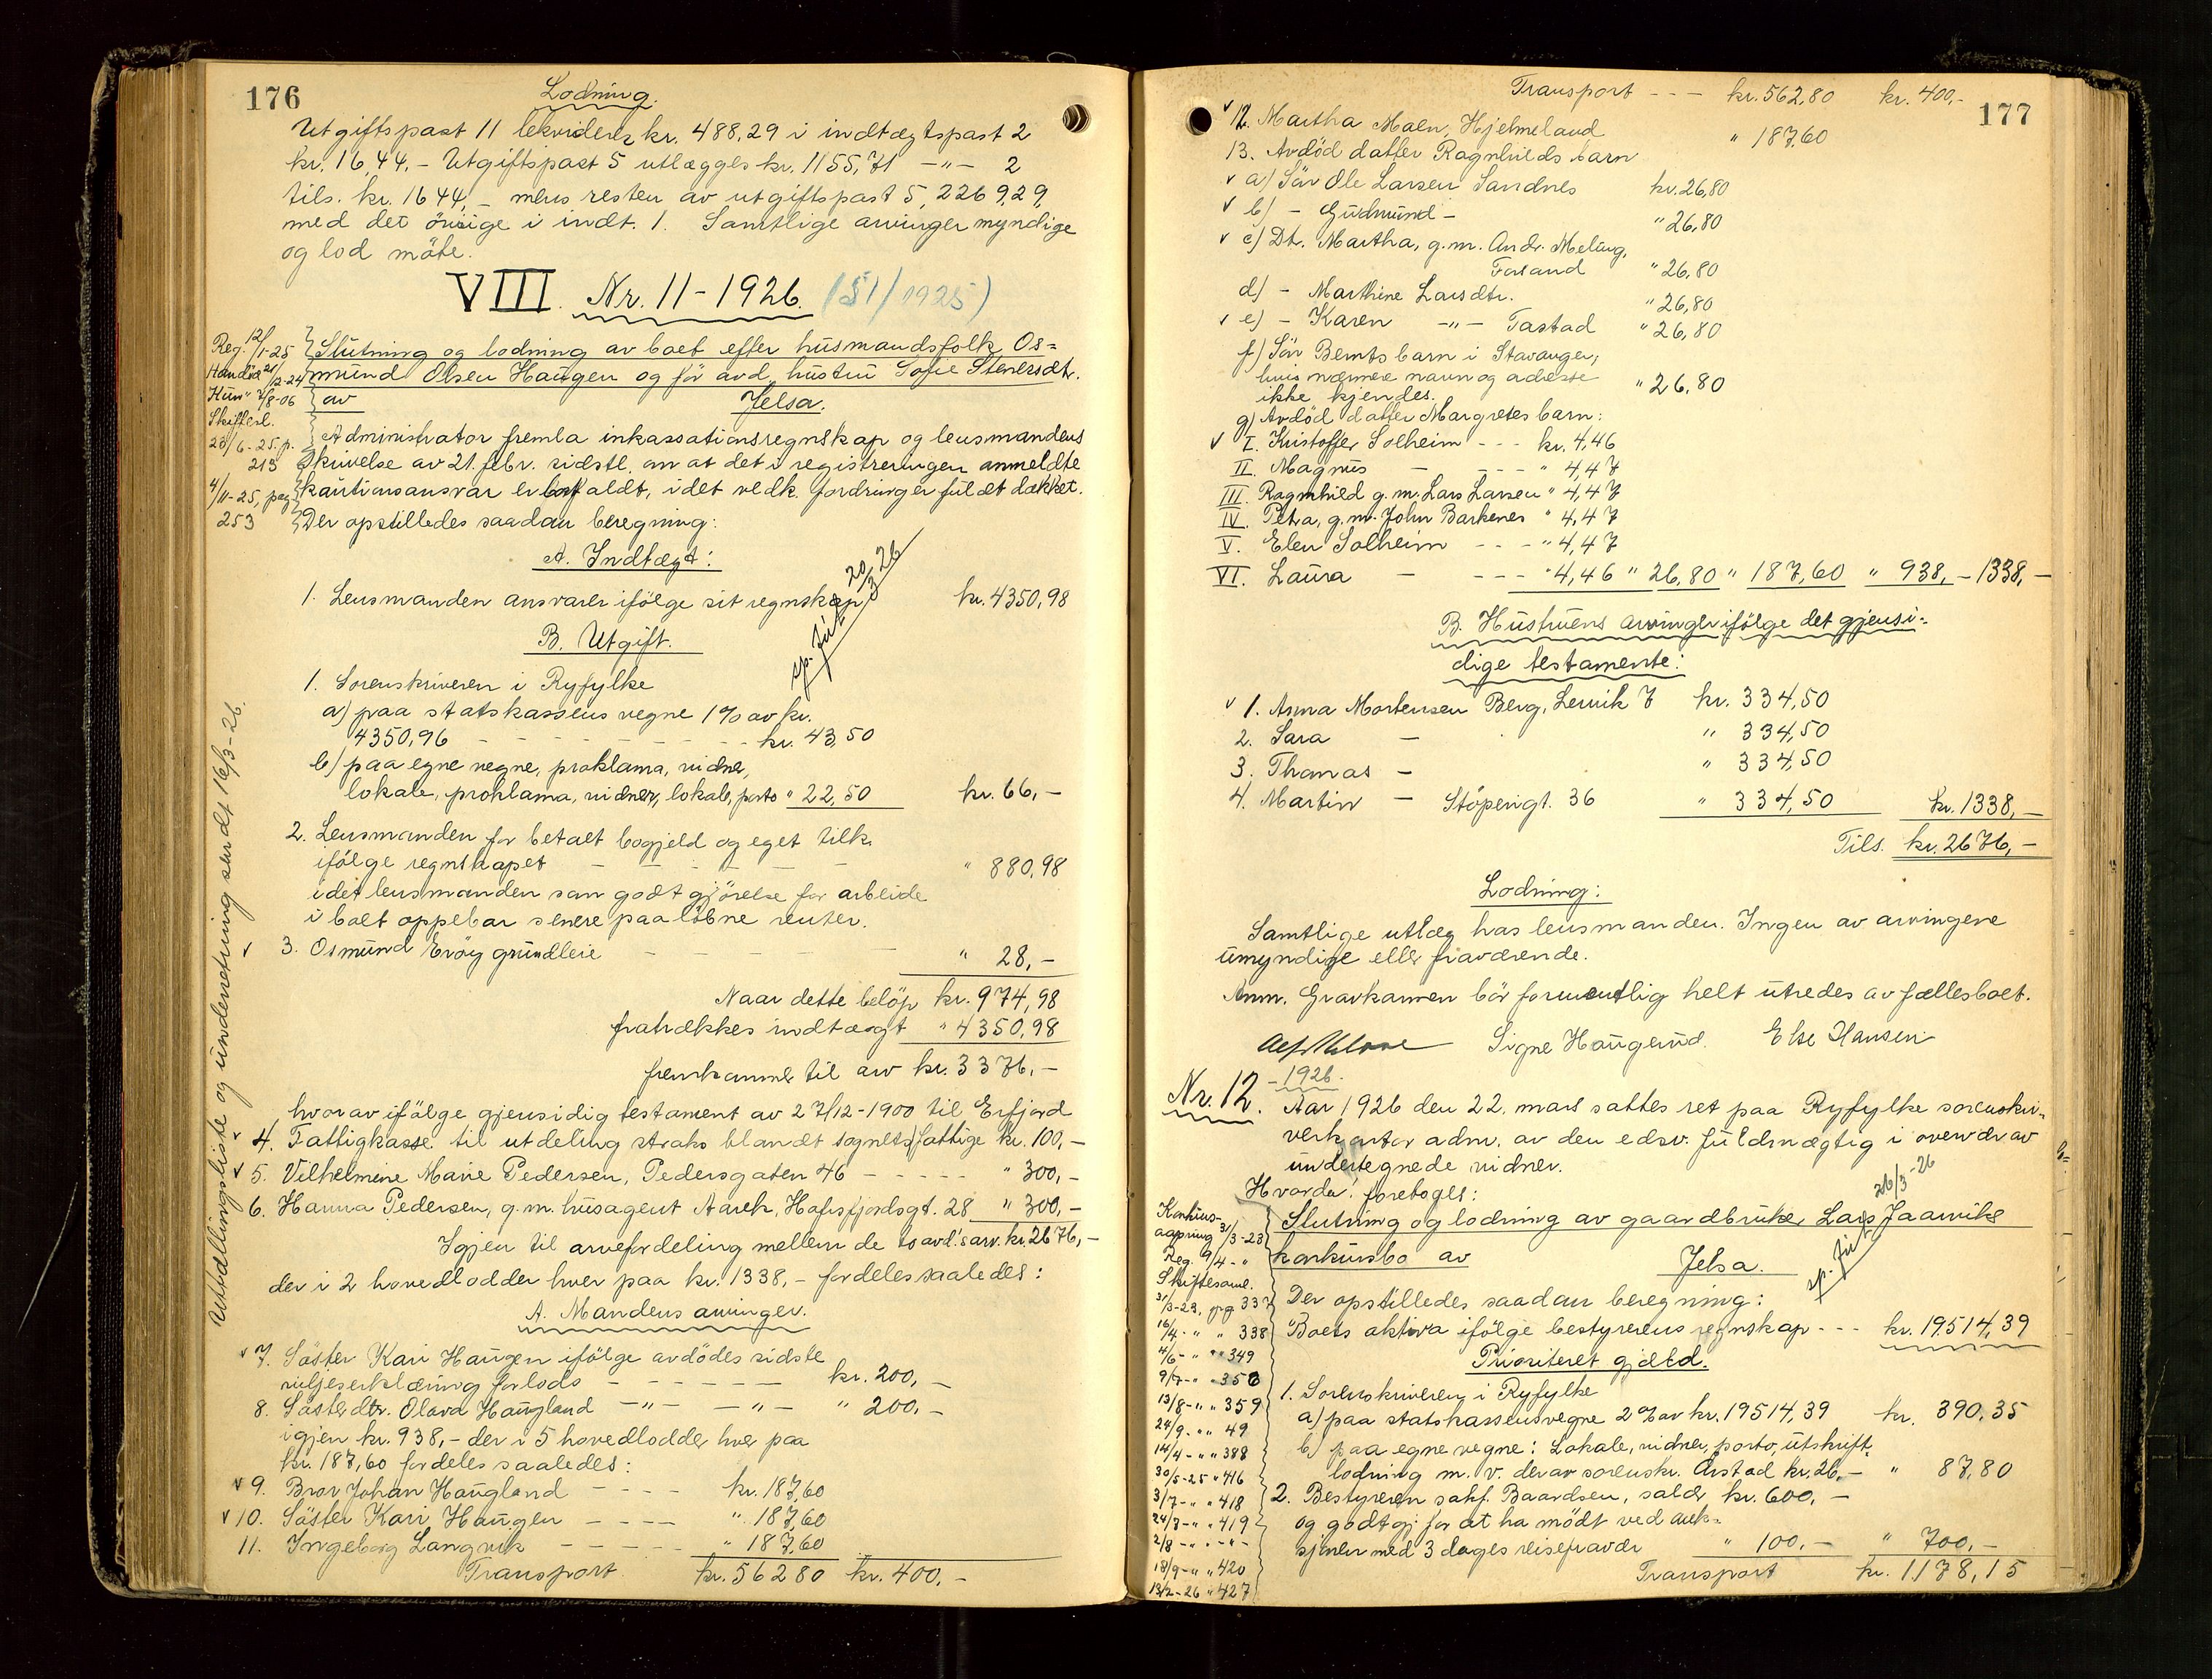 176
Lodning.
Utgiftspost 11 lekvideres kr. 488,29 i indtægtspost 2
kr. 16,44,- Utgiftspost 5 utlægges kr. 1155,71 -"- 2
tils. kr. 1644,- mens resten av utgiftspost 5, 2269,29,
med det övrige i indt. 1. Samtlige arvinger myndige
og lod möte.
VIII. Nr. 11-1926. (51/1925)
Reg. 12/1-25
Mandöd 21/12-24
Hun " 7/8-06
Skiftesl.
23/6-25, p.
213
4/11-25, pag
253
Slutning og lodning av boet efter husmandsfolk Os=
mund Olsen Haugen og för avd. hustru Sofie Stenersdtr.
av Jelsa.
Administrator fremla inkassationsregnskap og lensmandens
skrivelse av 21. febr. sidstl. om at det i registreringen anmeldte
kautionsansvar er bortfaldt, idet vedk. fordringer fuldt dækket.
Der opstilledes saadan beregning:
A. Indtægt:
1. Lensmanden ansvarer ifölge sit regnskap kr. 4350,98
20/3 26
B. Utgift.
1. Sorenskriveren i Ryfylke
a) paa statskassens vegne 1% av kr.
4350,96 - - - - - - - kr. 43,50
b) paa egne vegne, proklama, vidner,
lokale, proklama, vidner, lokale, porto " 22,50 kr. 66,-
2. Lensmanden for betalt bogjeld og eget tilk.
ifölge regnskapet - - - - - " 880,98
idet lensmanden som godtgjörelse for arbeide
i boet oppebar senere paalöbne renter.
3. Osmund Eröy grundleie - - - - " 28,-
Naar dette belöp kr. 974,98
fratrækkes indtægt " 4350,98
fremkommer til arv kr. 3376,-
hvorav ifölge gjensidig testament av 27/12-1900 til Erfjord
4. Fattigkasse til utdeling straks blandt sognets fattige kr. 100,-
5. Vilhelmine Marie Pedersen, Pedersgaten 46 - - - - - " 300,-
6. Hanna Pedersen, g.m. husagent Aarek, Hafrsfjordsgt. 28 " 300,-
Igjen til arvefordeling mellem de to avd.'s arv. kr. 2676,-
der i 2 hovedlodder hver paa kr. 1338,- fordeles saaledes:
A. Mandens arvinger.
7. Söster Kari Haugen ifölge avdödes sidste
viljeserklæring forlods - - - - - kr. 200,-
8. Sösterdtr. Olava Haugland -"- -"- " 200,-
igjen kr. 938,- der i 5 hovedlodder hver paa
kr. 187,60 fordeles saaledes:
9. Bror Johan Haugland - - - - kr. 187,60
10. Söster Kari Haugen - - - - " 187,60
11. Ingeborg Langvik - - - - - " 187,60
Transport kr. 562 80 kr. 400,-
Utbetalingsliste og underretning sendt 16/3-26.
177
Transport - - - kr. 562,80 kr. 400,-
12. Martha Maen, Hjelmeland " 187,60
13. Avdöd datter Ragnhilds barn
a) Sön Ole Larsen Sandnes kr. 26,80
b) - Gudmund - " 26,80
c) Dt. Martha, g.m. Andr. Meling,
Forsand " 26,80
d) - Marthine Larsdtr. " 26,80
e) - Karen -"- Tastad " 26,80
f) Sön Bernts barn i Stavanger,
hvis nærmere navn og adresse
ikke kjendes. " 26,80
g) Avdöd datter Margretes barn:
I. Kristoffer Solheim - - - kr. 4,46
II. Magnus - - - - " 4,47
III. Ragnhild g.m. Lars Larsen " 4,47
IV. Petra, g.m. John Barkenes " 4,47
V. Elen Solheim - - - " 4,47
VI. Laura - - - - " 4,46 " 26,80 " 187,60 " 938,- 1338,-
B. Hustruens arvinger ifölge det gjensi-
dige testamente:
1. Anna Mortensen Berg, Lervik 7 kr. 334,50
2. Sara - " 334,50
3. Thomas - " 334,50
4. Martin - Stöperigt. 36 " 334,50 kr. 1338,-
Tils. kr. 2676,-
Lodning:
Samtlige utlæg hos lensmanden. Ingen av arvingene
umyndige eller fraværende.
Anm. Gravkammen bör formentlig helt utredes av fællesboet.
Signe Haugerud. Else Hansen
Nr. 12. -1926.
Aar 1926 den 22. mars sattes ret paa Ryfylke sorenskri-
verkontor adm. av den edsv. fuldmægtig i overvær av
undertegnede vidner.
Hvorda! foretoges:
26/3-26
Slutning og lodning av gaardbruker Lars Jaarviks
konkursbo av Jelsa.
Konkurs-
aapning 3/3-23
Reg. 9/4- "
Skiftesaml.
31/3-23, pag 337
16/4- " " 338
4/6- " " 349
9/7- " " 356
13/8- " " 359
24/9- " " 49
14/4- " " 388
30/5-25 " 416
3/7- " " 418
24/7- " " 419
2/8- " - " -
18/9- " " 420
13/2-26 " 427
Der opstilledes saadan beregning:
Boets aktiva ifölge bestyrerens regnskap - - - kr. 19514,39
Prioritert gjæld.
1. Sorenskriveren i Ryfylke
a) paa statskassens vegne 2% av kr. 19514,39 kr. 390,35
b) paa egne vegne: Lokale, vidner, porto, utskrift,
lodning m.v. derav sorenskr. Arstad kr. 26,- " 87,80
2. Bestyreren sakf. Baardsen, salær kr. 600,-
og godtgj. for at ha mödt ved auk-
sjoner med 3 dages reisefravær " 100,- " 700,-
Transport kr. 1178,15